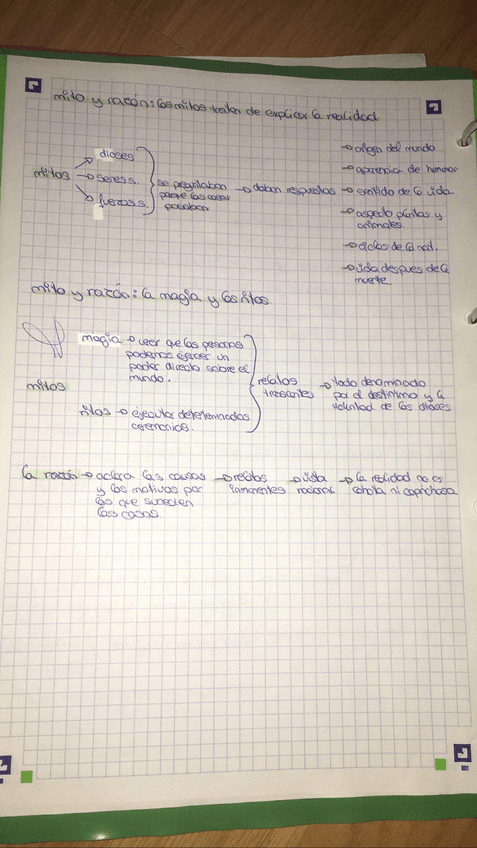 mito y razón: los mitos tratan de explicar la realidad
mitos
→ dioses
→ seres s.
→ fuerzas s.
se preguntaban
porqué las cosas
pasaban
→ daban respuestas
→ origen del mundo
→ apariencia de humanos
→ sentido de la vida
→ aspecto plantas y
animales.
→ ciclos de la nat.
→ vida despues de la
muerte
mito y razón: la magia y los ritos.
mitos
magia → creer que las personas
podemos ejercer un
poder directo sobre el
mundo.
ritos → ejecutar determinadas
ceremonias.
relatos
→ todo denominado
por el destino y la
voluntad de los dioses
la razón → aclara las causas
y los motivos por
los que suceden
las cosas.
→ relatos
inmanentes
→ vista
racional
→ la realidad no es
caótica ni caprichosa